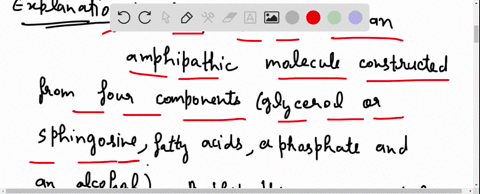 Explanation
an
amphipathic molecule constructed
from four components (glycerol or
sphingosine, fatty acids, a phosphate and
an alcohol)